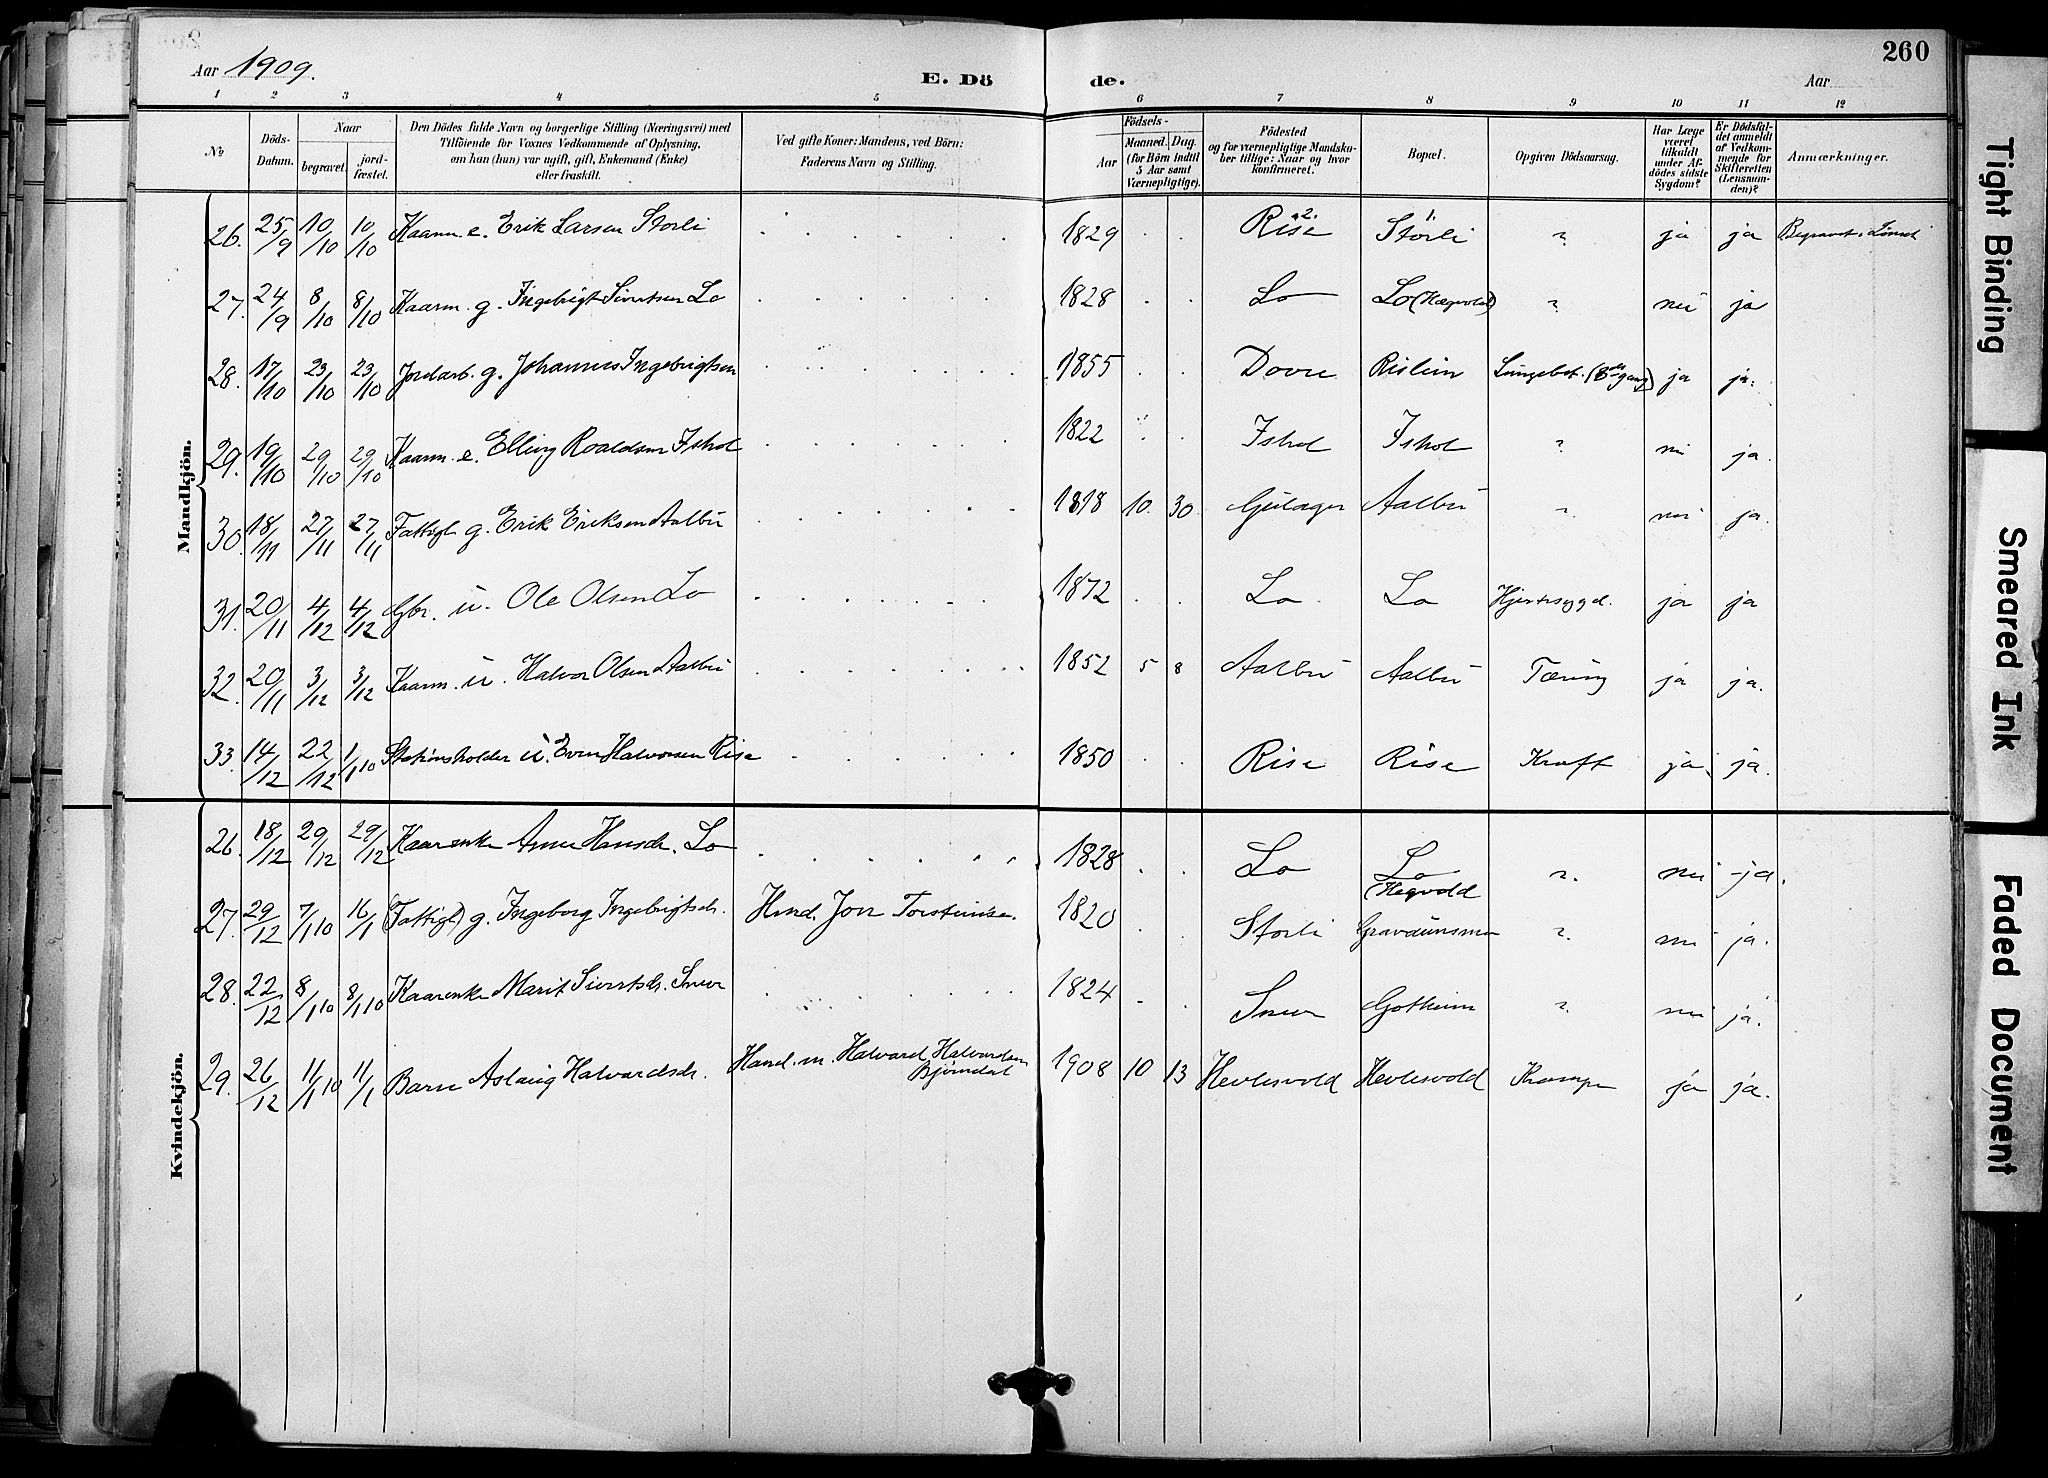 260
Aar 1909.
E. Dö
de.
Aar
1 2 3 4 5 6 7 8 9 10 11 12
No
Döds-Datum.
Naar
begravet.
jord-fæstet.
Den Dödes fulde Navn og borgerlige Stilling (Næringsvei) med
Tilföiende for Voxnes Vedkommende af Oplysning,
om han (hun) var ugift, gift, Enkemand (Enke)
eller fraskilt.
Ved gifte Koner: Mandens, ved Börn:
Faderens Navn og Stilling.
Födsels-
Aar
Maaned. Dag.
(for Börn indtil
5 Aar samt
Værnepligtige).
Födested
og for værnepligtige Mandska-
ber tillige: Naar og hvor
konfirmeret.
Bopæl.
Opgiven Dödsaarsag.
Har Læge
været
tilkaldt
under Af-
dödes sidste
Sygdom?
Er Dödsfal-
det anmeldt
af Vedkom-
mende for
Skifteretten
(Lensman-
den)?
Anmærkninger.
Mandkjön.
26. 25/9 10/10 10/10 Kaarm. e. Erik Larsen Storli 1829 Rise 2. Storli 1. ? ja ja Begravet i Lönset
27. 24/9 8/10 8/10 Kaarm. g. Ingebrigt Sivertsen Lo 1828 Lo Lo (Hægvold) ? nei ja
28. 17/10 23/10 23/10 Jordarb. g. Johannes Ingebrigtsen 1855 Dovre Rislien ja ja.
29. 19/10 29/10 29/10 Kaarm. e. Elling Roaldsen Ishol 1822 Ishol Ishol ? nei ja.
30. 18/11 27/11 27/11 Fattigl. g. Erik Eriksen Aalbu 1818 10. 30. Gulager Aalbu ? nei ja.
31. 20/11 4/12 4/12 Gbr. u. Ole Olsen Lo 1872 Lo Lo Hjertesygd. ja ja
32. 20/11 3/12 3/12 Kaarm. u. Halvor Olsen Aalbu 1852 5 8 Aalbu Aalbu Tæring ja ja.
33. 14/12 22/12 1/1 10 Stationsholder u. Even Halvorsen Rise 1850 Rise Rise Kræft ja ja.
Kvindekjön.
26. 18/12 29/12 29/12 Kaarenke Anne Hansdr. Lo 1828 Lo Lo (Hegvold ? nei ja.
27. 29/12 7/1 10 16/1 (Fattigl) g. Ingeborg Ingebrigtsdr. Hmd. Jon Torsteinsen. 1820 Storli Gravaunsmoen ?. nei ja.
28. 22/12 8/1 10 8/1 10 Kaarenke Marit Sivertsdr. Snoen 1824 Snoen Gotheim ?. nei ja.
29. 26/12 11/1 10 11/1 Barn Aslaug Halvardsdr. Hand. m. Halvard Halvardsen Bjørndal 1908 10 13 Hevlesvold Hevlesvold Krampe ja ja.
Tight Binding
Smeared Ink
Faded Document